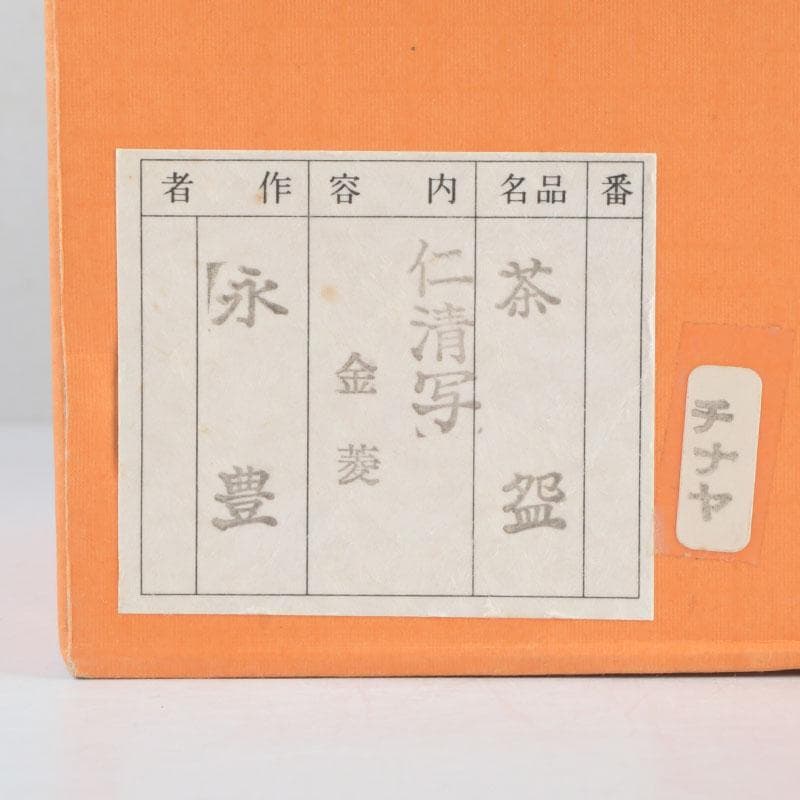 番
品名
茶盌
内容
仁清写
金菱
作者
永豊
チナヤ